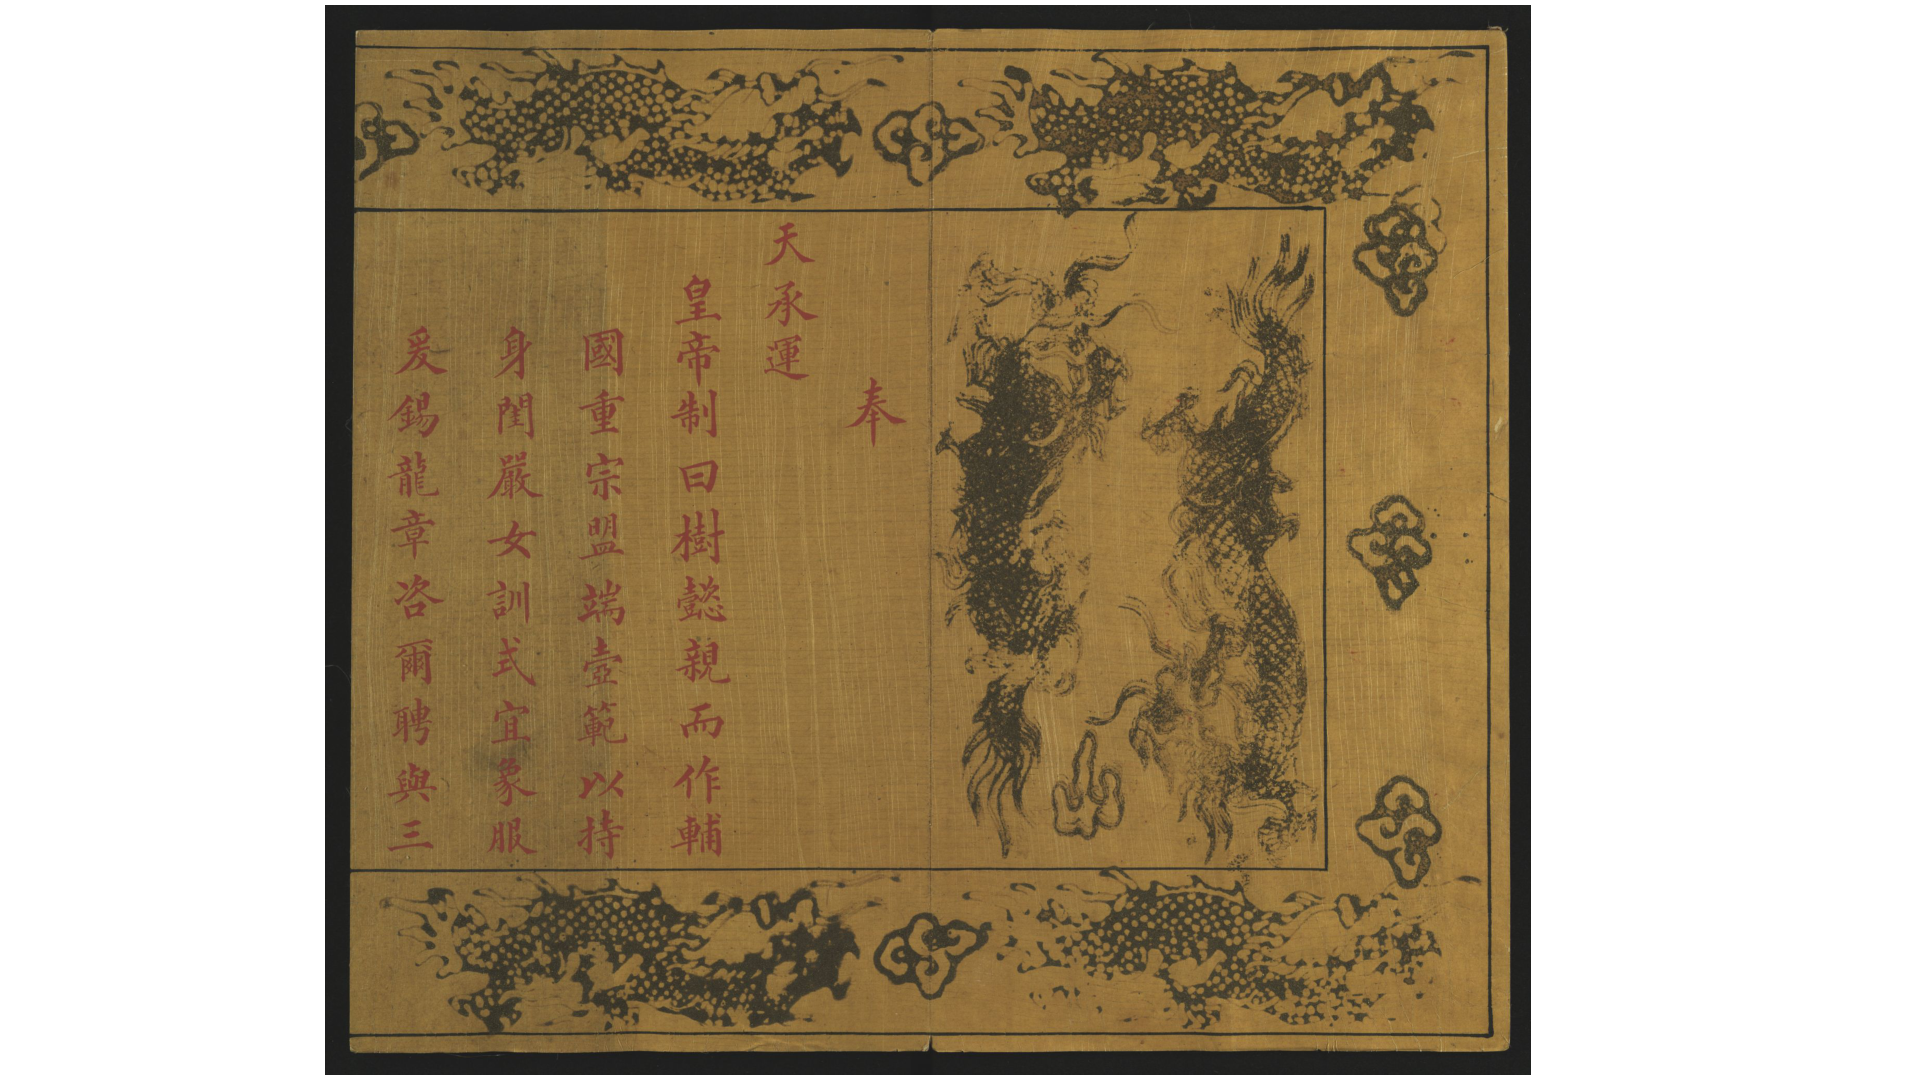 奉
天承運
皇帝制曰樹懿親而作輔
國重宗盟端壼範以持
身閨嚴女訓式宜象服
爰錫龍章咨爾聘與三